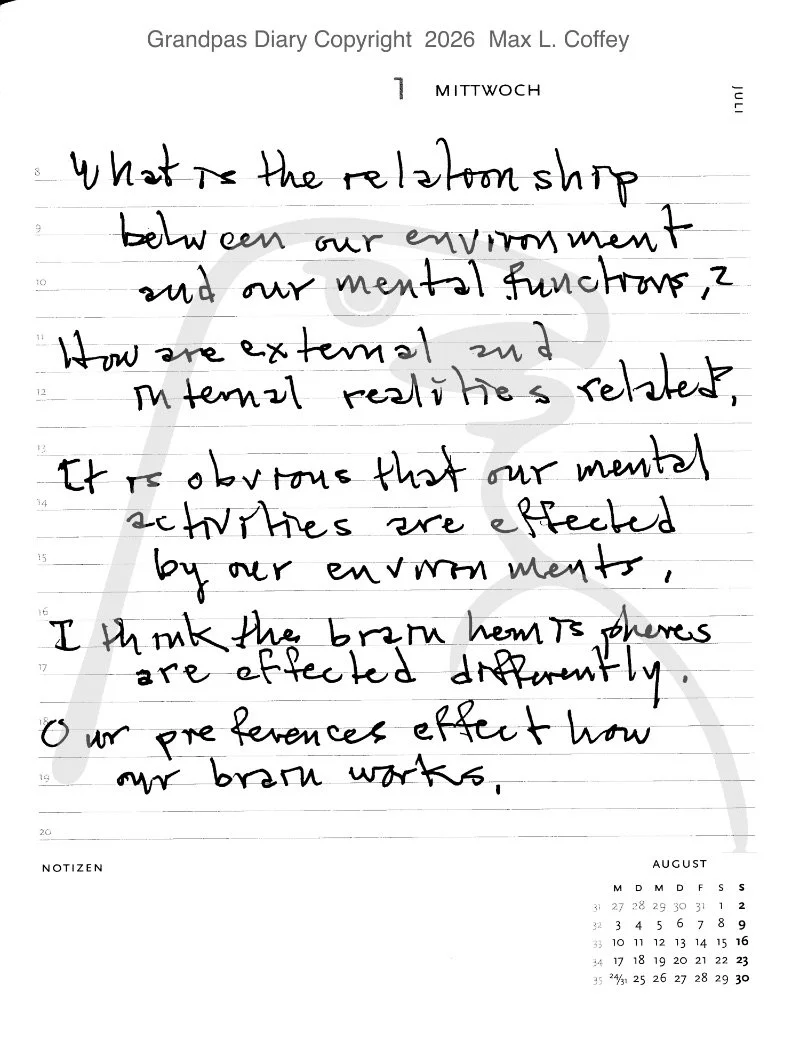 Grandpas Diary Copyright 2026 Max L. Coffey
1 MITTWOCH
JULI
8 What is the relationship
9 between our environment
10 and our mental functions,?
11 How are external and
12 internal realities related?,
13
It is obvious that our mental
14 activities are effected
15 by our environments,
16
I think the brain hemispheres
17 are effected differently.
18 Our preferences effect how
19 our brain works,
20
NOTIZEN
AUGUST
M D M D F S S
31 27 28 29 30 31 1 2
32 3 4 5 6 7 8 9
33 10 11 12 13 14 15 16
34 17 18 19 20 21 22 23
35 24/31 25 26 27 28 29 30